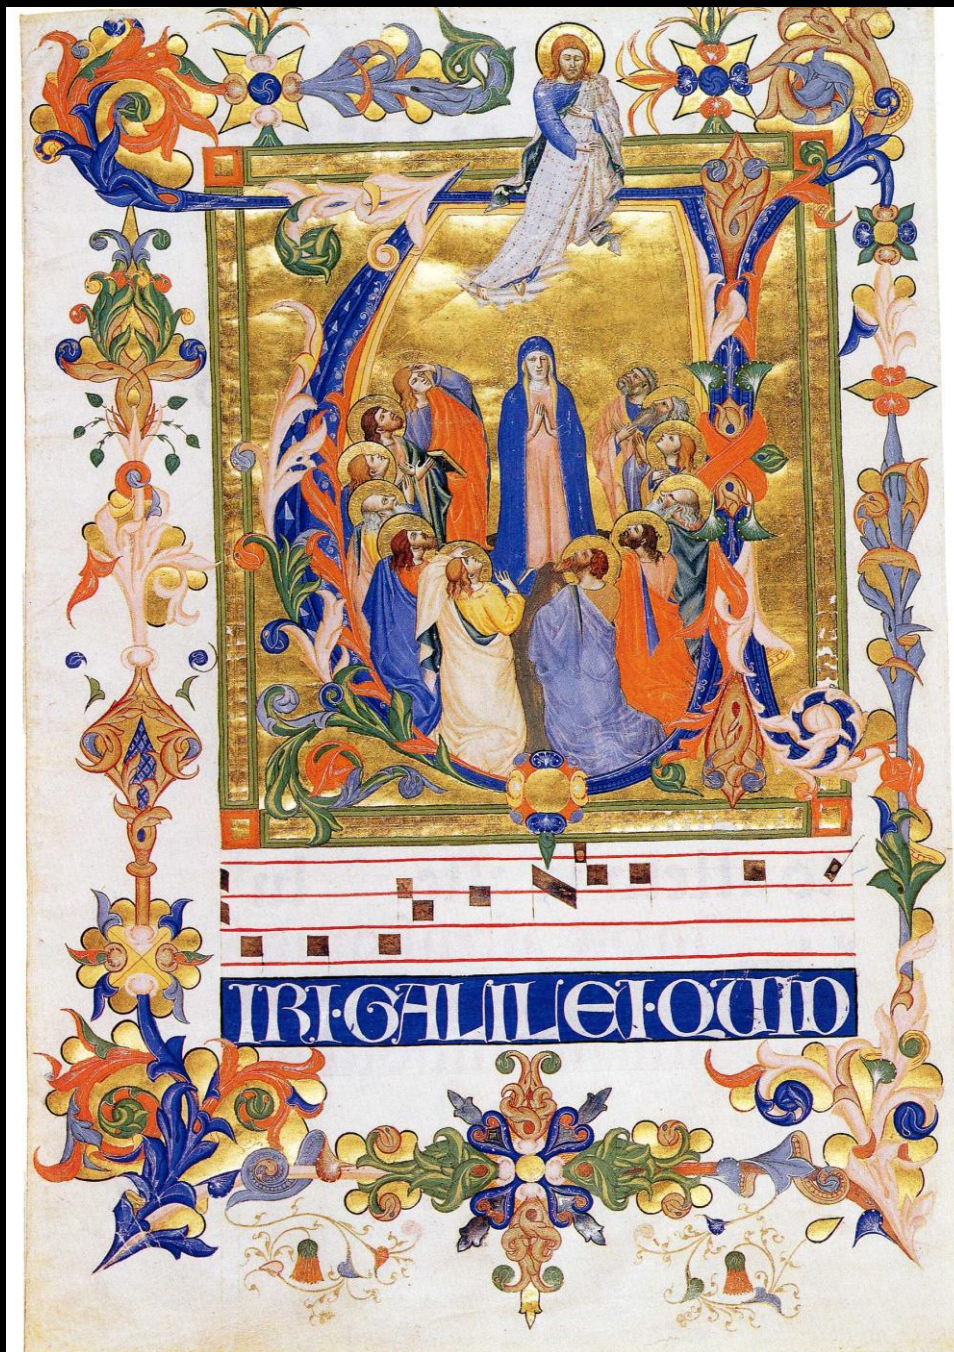 V
IRI·GALILEI·QUID